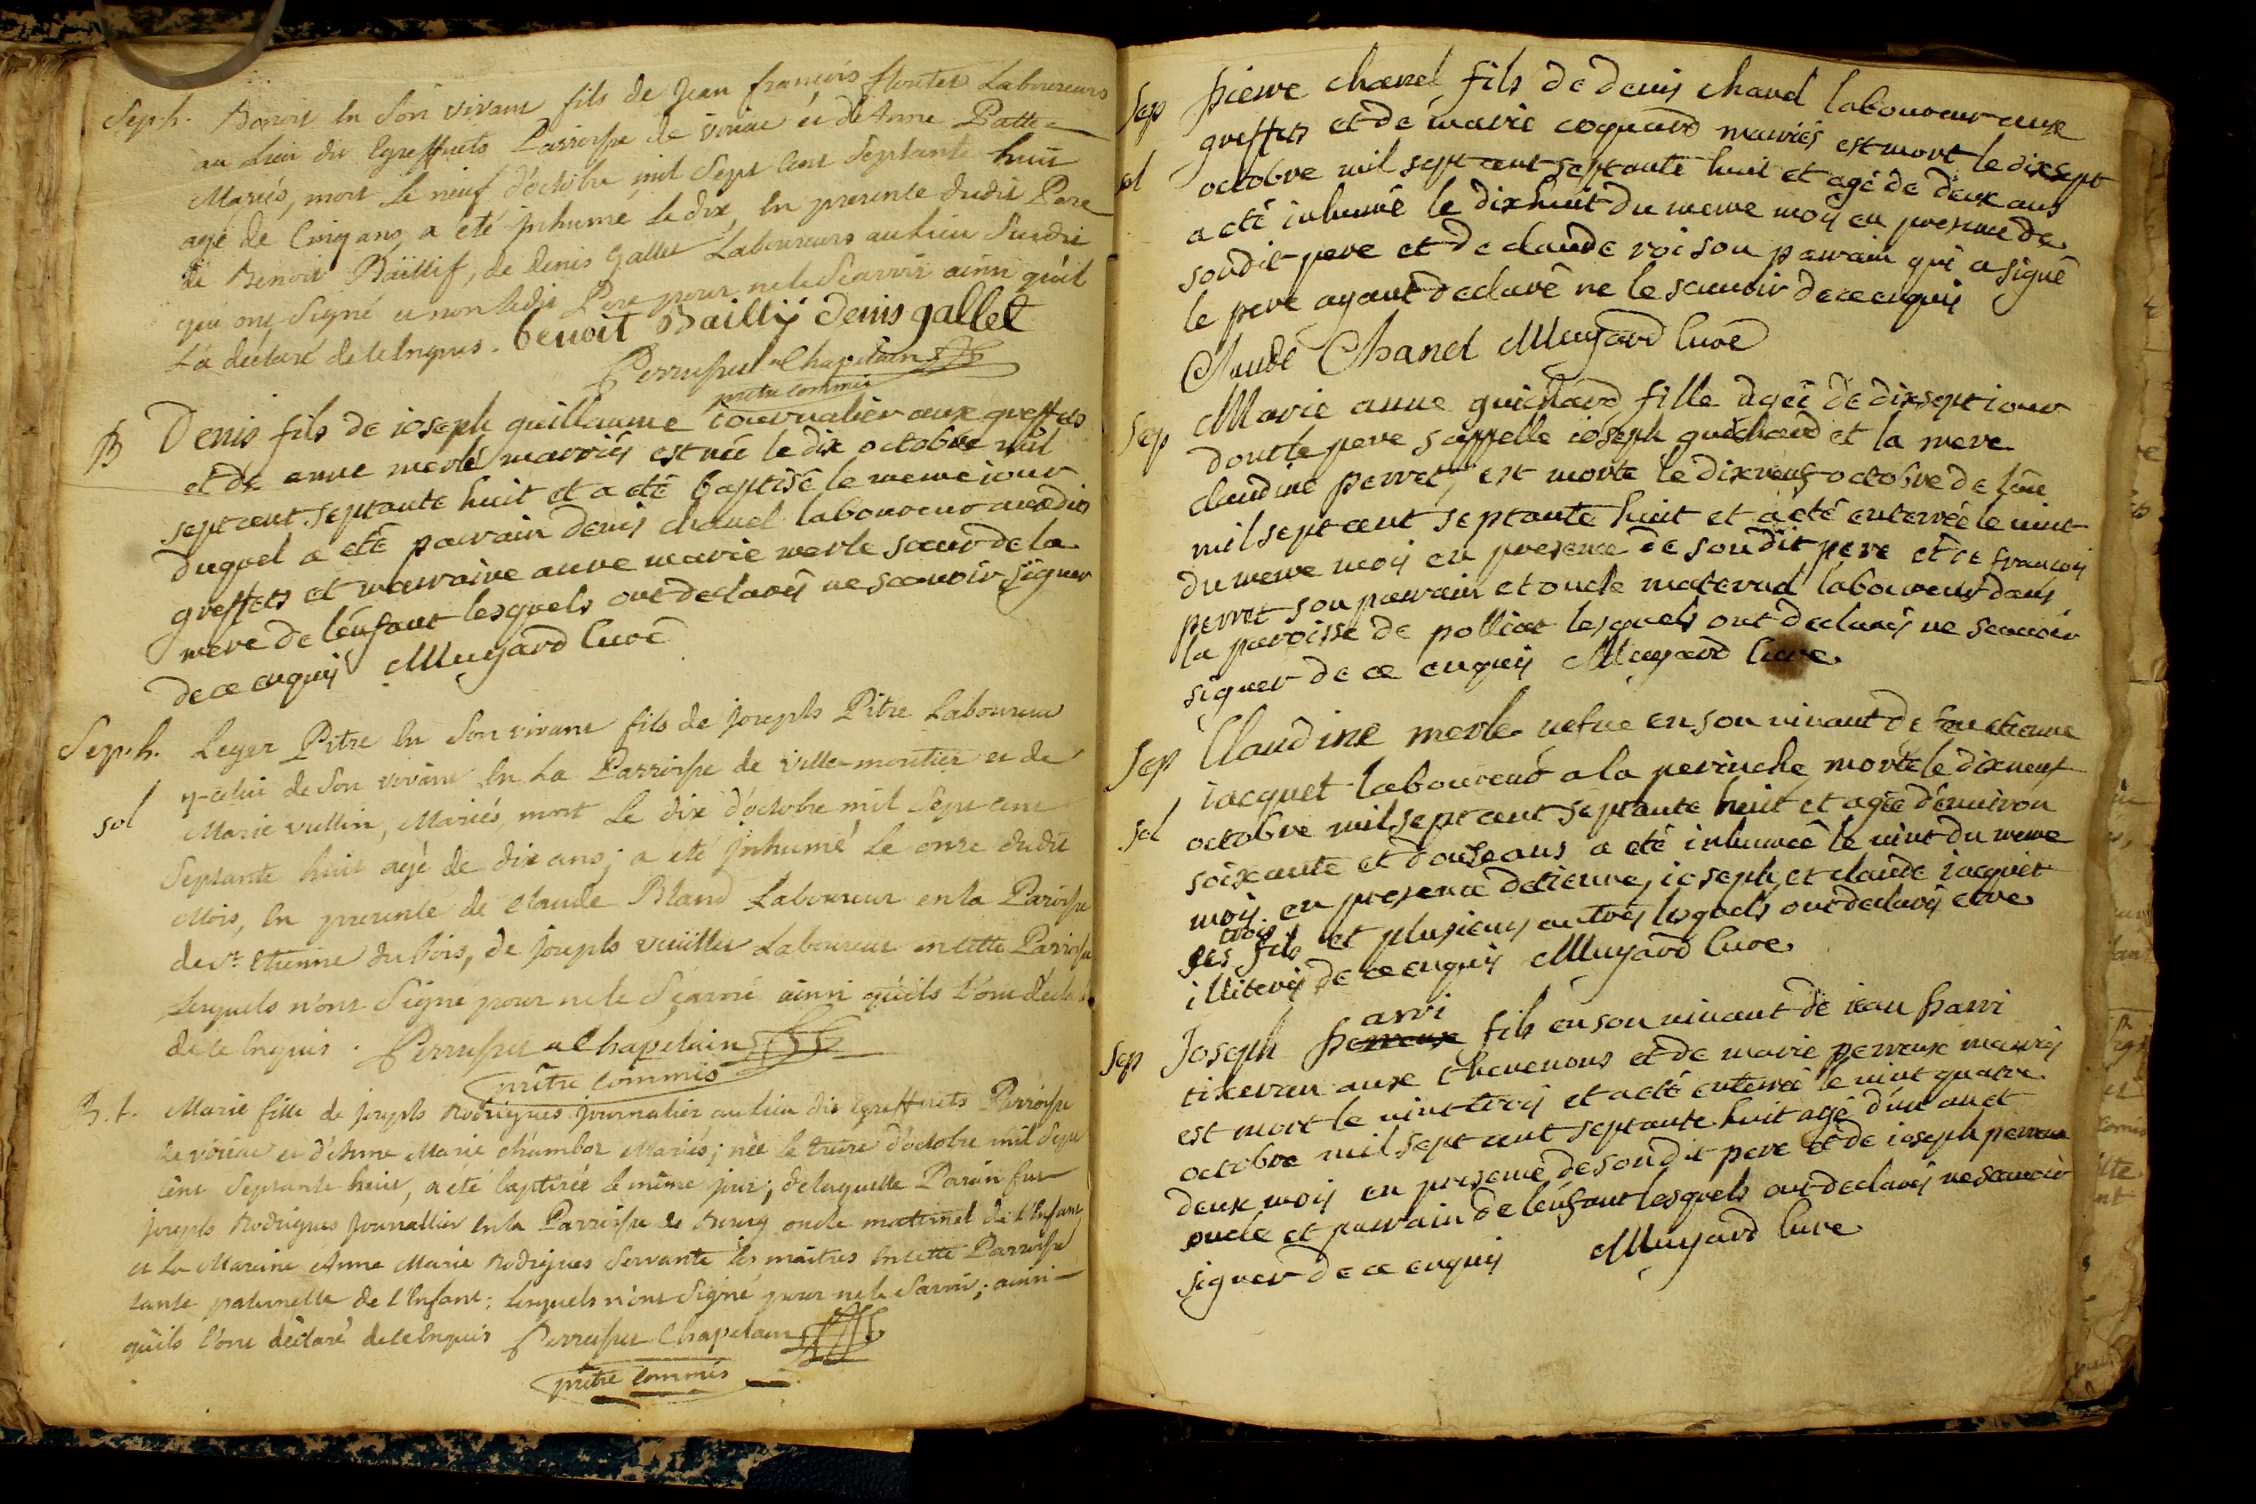 Seph. Benoit En Son vivant fils de Jean françois floutes Laboureurs
au Lieu dit Egreffiets Parroisse de viriac et de Anne Patte
Mariés, mort Le neuf d'octobre mil Sept Cent Septante huit
agé de Cinq ans, a été jnhumé Le dix, En presence dudit Pere
de Benoit Baillif, de denis gallet Laboureurs au Lieu Susdit
qui ont Signé et non ledit Pere pour ne le Scavoir ainsi qu'il
L'a déclaré de ce Enquis. benoit Bailliÿ denis gallet
Perrusset Chapelain
prêtre commis
B Denis fils de ioseph guillaume iournalier aux greffets
et de anne merle marriés est née le dix octobre mil
sept cent septante huit et a eté baptisé le meme iour
duquel a eté parrain denis chanel laboureur auxdits
greffets et marraine anne marie merle sœur de la
mere de l'enfant lesquels ont declarés ne scavoir signer
de ce enquis Muyard Curé
Seph. Leger Pitre En Son vivant fils de Joseph Pitre Laboureur
y-celui de Son vivant En La Parroisse de Villemoutier et de
sol Marie vullin, Mariés, mort Le dix d'octobre mil Sept cent
Septante huit agé de dix ans; a eté jnhumé Le onze dudit
Mois, En presence de Claude Bland Laboureur en la Paroisse
de St. Etienne du bois, de Joseph vuillet Laboureur en cette Parroisse
Lesquels n'ont Signé pour ne le Sçavoir ainsi qu'ils l'ont déclaré
de ce Enquis. Perrusset Chapelain
prêtre commis
B.t. Marie fille de Joseph Rodrigues journalier au lieu dit Egreffiets Parroisse
de viriac et d'Anne Marie chambos Mariés; née le treize d'octobre mil Sept
Cent Septante huit, a été baptisée le même jour; de laquelle Parain fut
Joseph Rodrigues Journallier En la Parroisse de Bourg oncle maternel de l'Enfant
et La Maraine Anne Marie Rodrigues Servante les maîtres En cette Parroisse
tante paternelle de l'Enfant; Lesquels n'ont Signé pour ne le Savoir; ainsi
qu'ils l'ont déclaré de ce Enquis Perrusset Chapelain
prêtre commis
Sep pierre chanel fils de denis chanel laboureur aux
greffets et de marie coquard mariés est mort le dixsept
sol octobre mil sept cent septante huit et agé de deux ans
a eté inhumé le dixhuit du meme mois en presence de
sondit pere et de claude roi son parrain qui a signé
le pere ayant declaré ne le scavoir de ce enquis
Claude Chanel Muyard Curé
Sep Marie anne guichard fille agée de dixsept iour
dont le pere s'appelle ioseph guichard et la mere
claudine perret, est morte le dixneuf octobre de l'an
mil sept cent septante huit et a eté enterrée le vint
du meme mois en presence de sondit pere et de francois
perret son parrain et oncle maternel laboureur dans
la paroisse de polliat lesquels ont declarés ne scavoir
signer de ce enquis Muyard Curé
Sep Claudine merle vefue en son vivant de feu etienne
iacquet laboureur a la perinche, morte le dixneuf
sol octobre mil sept cent septante huit et agée d'environ
soixante et douze ans a eté inhumée le vint du meme
mois en presence d'etienne, ioseph et claude iacquet
ses trois fils et plusieurs autres lesquels ont declarés etre
illiterés de ce enquis Muyard Curé
Sep Joseph parri fils en son vivant de iean parri
tixeran aux thevenons et de marie perreux mariés
est mort le vint trois et a eté enterré le vint quatre
octobre mil sept cent septante huit agé d'un an et
deux mois en presence de sondit pere et de ioseph perreux
oncle et parrain de l'enfant lesquels ont declarés ne scavoir
signer de ce enquis Muyard Curé